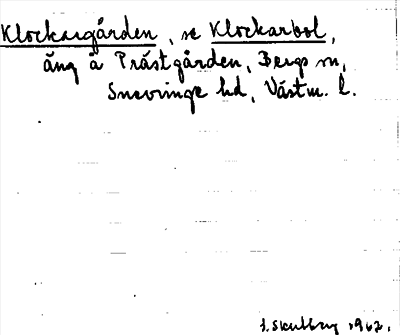 Klockargården, se Klockarbol,
äng å Prästgården, Bergs sn,
Snevringe hd, Västm. l.
J. Skulberg 1962.